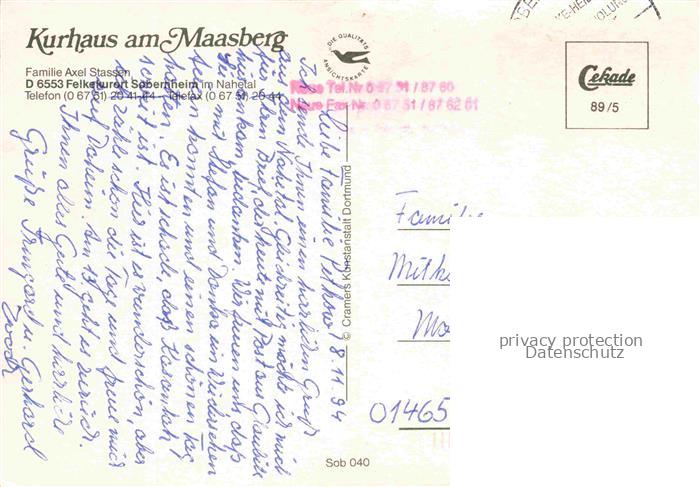 Kurhaus am Maasberg
Familie Axel Stassen
D 6553 Felkekurort Sobernheim im Nahetal
Telefon (0 67 51) 20 41-44 – Telefax (0 67 51) 20 44
DIE QUALITÄTS
ANSICHTSKARTE
Neue Tel.Nr 0 67 51 / 87 60
Neue Fax Nr. 0 67 51 / 87 62 01
Cekade
89/5
Liebe Familie 8.11.94
Ich sende Ihnen einen herzlichen Gruß
aus dem Nahetal. Gleichzeitig möchte ich mich
für den Brief, der heute mit Post aus
ankam, bedanken. Wir freuen uns, daß
Sie mit Stefan und ein Wiedersehen
feiern konnten und einen schönen Tag
hatten. Es ist schade, daß
so weit ist. Hier ist es wunderschön, aber
ich zähle schon die Tage und freue mich
auf Daheim. Am 15. geht es zurück.
Ihnen alles Gute und herzliche
Grüße Irmgard u. Gerhard
© Cramers Kunstanstalt Dortmund
Famili
01465
privacy protection
Datenschutz
Sob 040